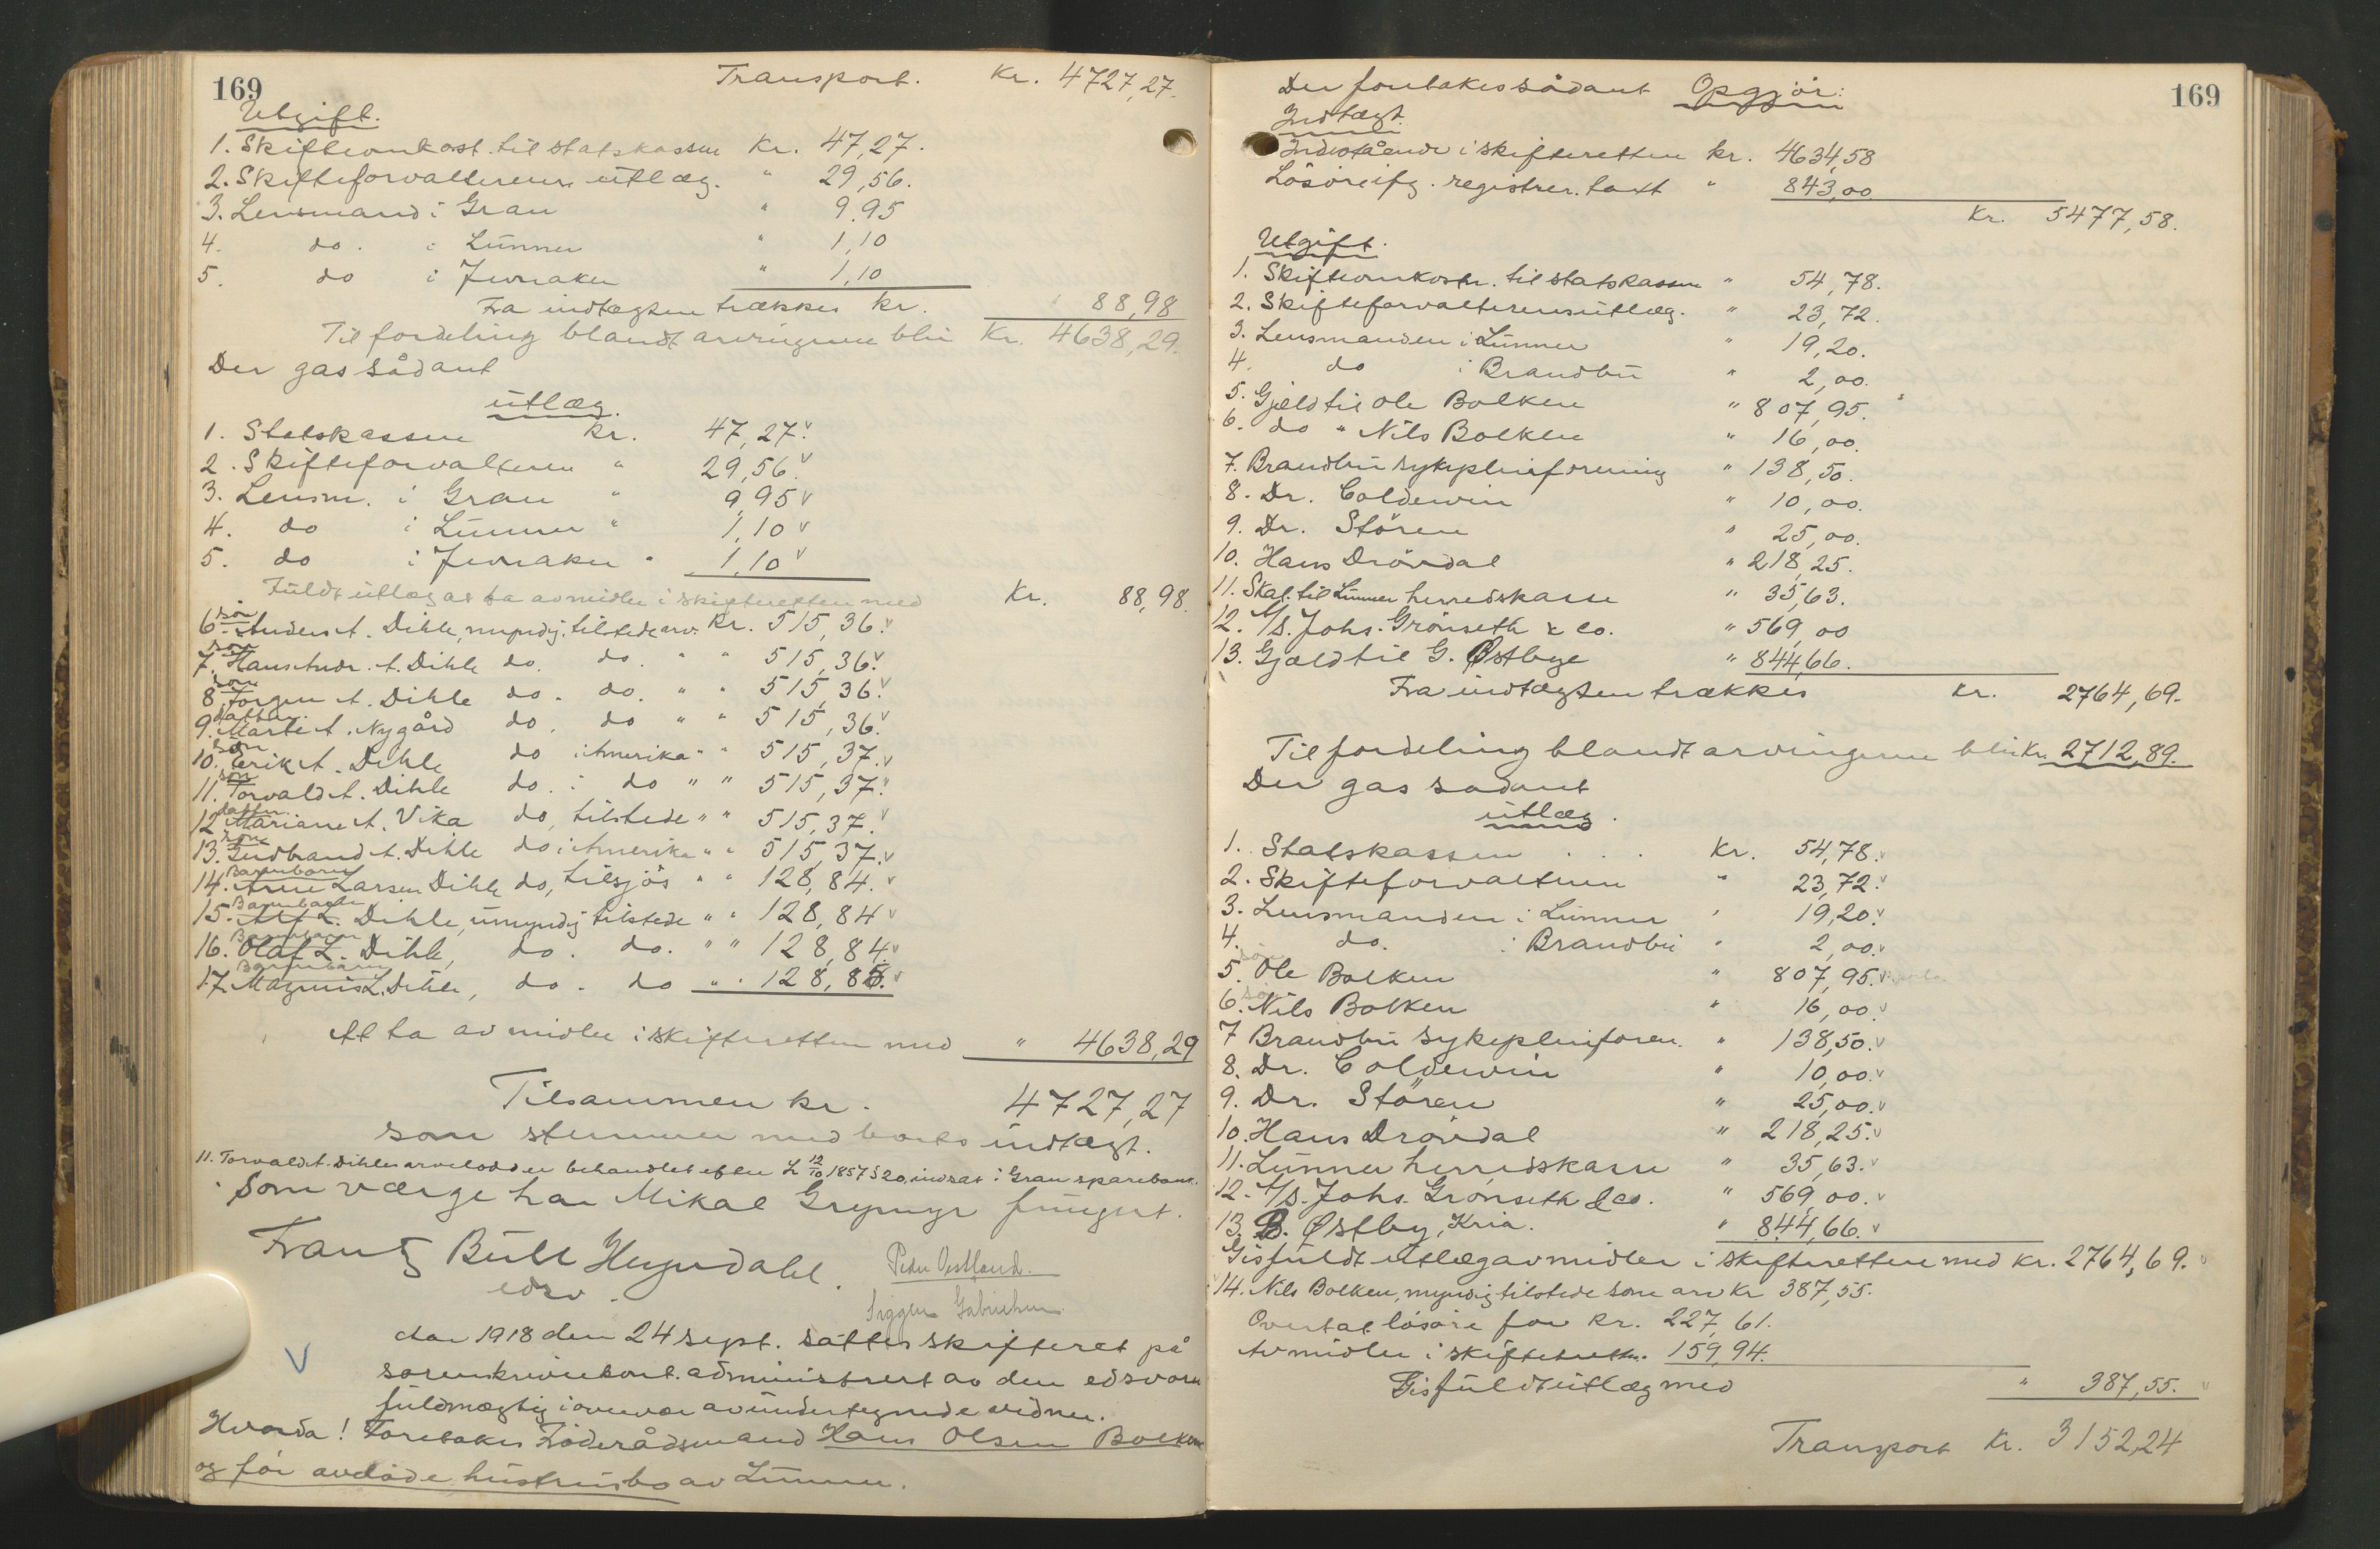 169
Transport. Kr. 4727,27.
Utgift.
1. Skifteomkost. til statskassen Kr. 47,27.
2. Skifteforvalterens utlæg. " 29,56.
3. Lensmand i Gran " 9.95
4. do. i Lunner " 1,10
5. do i Jevnaker " 1,10
Fra indtægten trækkes kr. 88,98
Til fordeling blandt arvingerne blir Kr. 4638,29.
Der gas sådant
utlæg.
1. Statskassen Kr. 47,27.
2. Skifteforvalteren " 29,56.
3. Lensm. i Gran " 9,95
4. do i Lunner " 1,10
5. do i Jevnaker " 1,10
Fuldt utlæg at ta av midler i skifteretten med Kr. 88,98.
6. søn Anders A. Dihle, myndig, tilstede arv. Kr. 515,36.
7. søn Hans Andr. A. Dihle do. do. " " 515,36.
8. søn Jørgen A. Dihle do. do. " " 515,36.
9. datter Marte A. Nygård do. do " " 515,36.
10. søn Erik A. Dihle do i Amerika " " 515,37.
11. søn Torvald A. Dihle do. i do " " 515,37.
12. datter Mariane A. Vika do, tilstede " " 515,37.
13. søn Gudbrand A. Dihle do i Amerika " " 515,37.
14. Barnebarn Arne Larsen Dihle do, tilsjös " " 128,84.
15. Barnebarn Alf L. Dihle, umyndig tilstede " " 128,84
16. Barnebarn Olaf L. Dihle, do. do. " " 128,84.
17. Barnebarn Magnus L. Dihle, do. do " " 128,85.
At ta av midler i skifteretten med " 4638,29
Tilsammen kr. 4727,27
som stemmer med boets indtægt.
11. Torvald A. Dihles arvelodd er behandlet efter L 12/10 1857 § 20, indsat i Gran sparebank.
Som værge har Mikal Grymyr fungert.
Frantz Bull Heyerdahl.
edsv.
Peder Østland.
Siggur
dar 1918 den 24 sept. sattes skifteret på
sorenskriverkont. administrert av den edsvorn
fuldmægtig i overvær av undertegnede vidner.
Hvorda! Foretokes Föderådsmand Hans Olsen Bolken
og för avdöde hustrus bo av Lunner.
169
Der foretakes sådant Opgjör:
Indtægt.
Indestående i skifteretten kr. 4634,58
Lösöre ifg. registrer. takst " 843,00
Kr. 5477,58.
Utgift.
1. Skifteomkostn. til statskassen " 54,78.
2. Skifteforvalterens utlæg. " 23,72.
3. Lensmanden i Lunner " 19,20.
4. do i Brandbu " 2,00.
5. Gjæld til Ole Bolken " 807,95.
6. do " Nils Bolken " 16,00.
7. Brandbu sykepleieforening " 138,50.
8. Dr. Coldevin " 10,00.
9. Dr. Stören " 25,00.
10. Hans Drövdal " 218,25.
11. Skat til Lunner herredskasse " 35,63.
12. A/S. Johs. Grönseth & Co. " 569,00
13. Gjæld til G. Østbye " 844,66.
Fra indtægten trækkes Kr. 2764,69.
Til fordeling blandt arvingerne blir Kr. 2712,89.
Der gas sadant
utlæg.
1. Statskassen . . . Kr. 54,78.
2. Skifteforvalteren " 23,72.
3. Lensmanden i Lunner " 19,20.
4. do. i Brandbu " 2,00.
5. søn Ole Bolken " 807,95.
6. søn Nils Bolken " 16,00.
7 Brandbu sykepleieforen. " 138,50.
8. Dr. Coldewin " 10,00.
9. Dr. Stören " 25,00.
10. Hans Drövdal " 218,25.
11. Lunner herredskasse " 35,63.
12. A/S. Johs. Grönseth & Co. " 569,00.
13. G. Østby, Kria. " 844,66.
Gis fuldt utlæg av midler i skifteretten med Kr. 2764,69.
14. Nils Bolken, myndig tilstede som arv Kr 387,55.
Overtat lösöre for Kr. 227,61.
Av midler i skifteretten. 159,94.
Gis fuldt utlæg med " 387,55.
Transport Kr. 3152,24